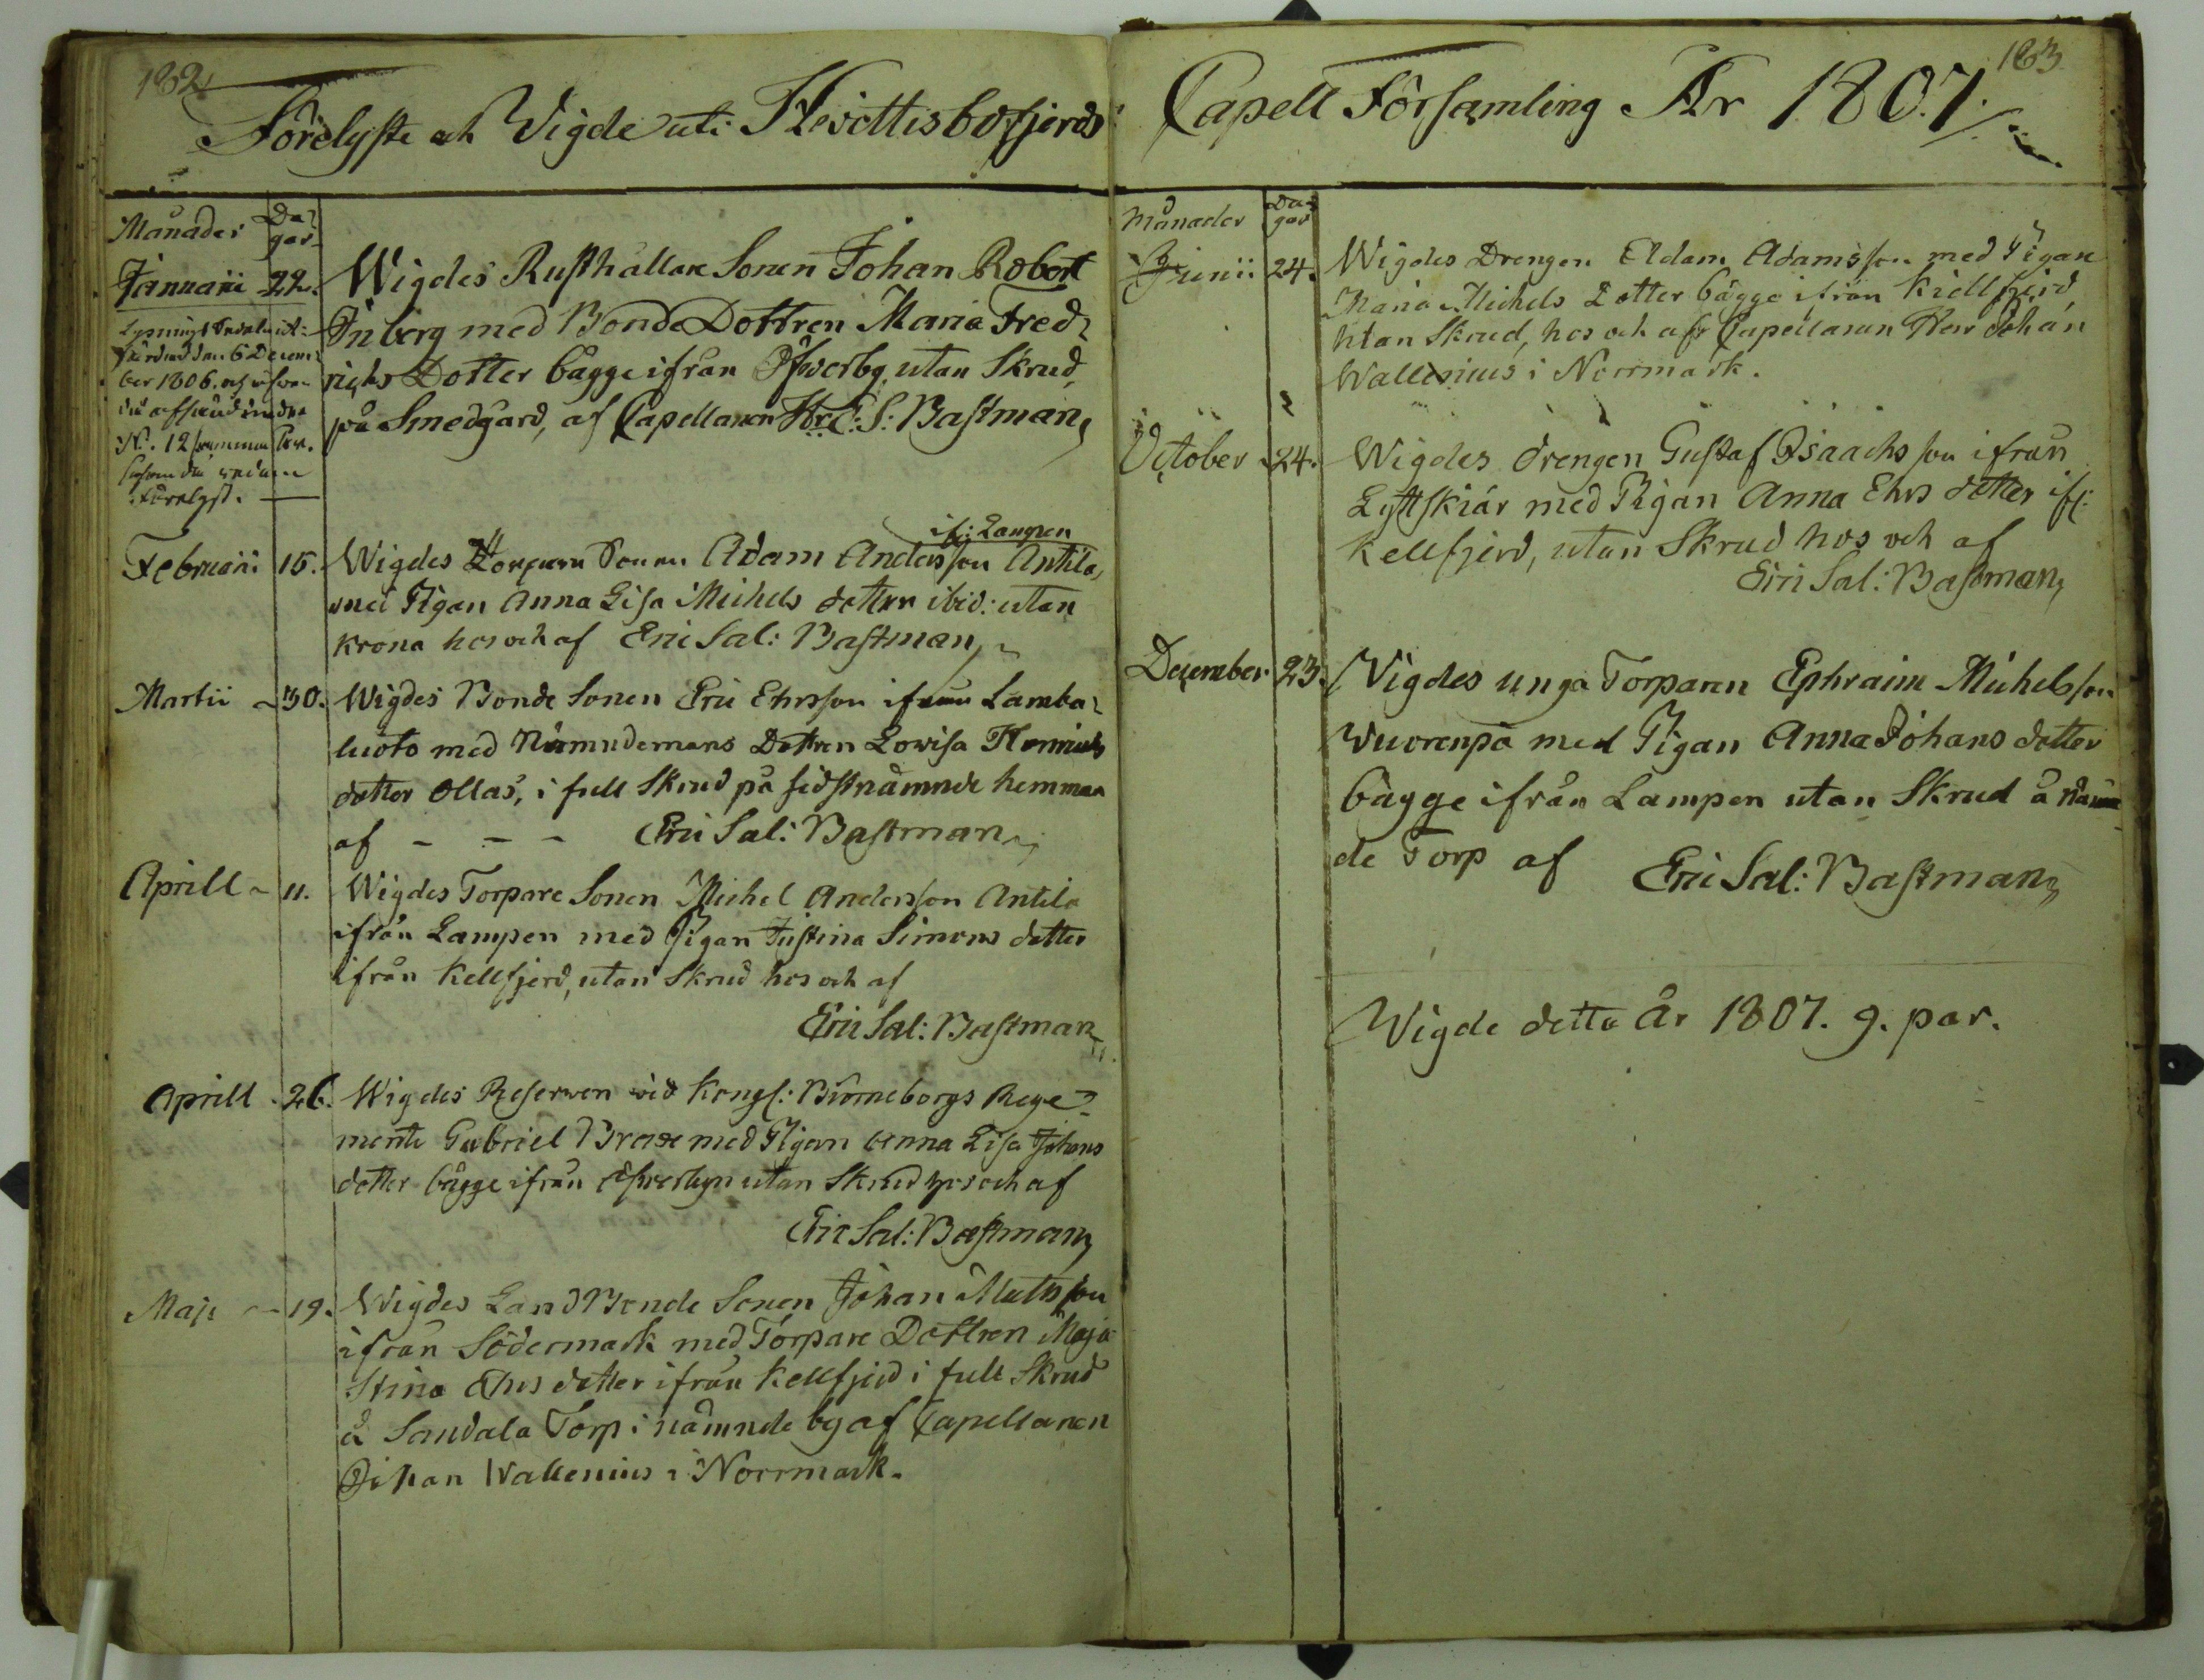 182
Förelyste och Wigde uti Hevittisbofjerds
Månader Da=
gar
Januarii 22. Wigdes Rusthållare Sonen Johan Robert
Inberg med Bonde Dottren Maria Fred=
richs Dotter bägge ifrån Öfverby, utan Skrud,
på Smedgård, af Capellanen Hr E: S: Bastman,
Lysnings Sedel ut=
färdad den 6 Decem=
ber 1806. och
N:o 12
redan
förelyst.
if: Lampen
Februarii 15. Wigdes Torparn Sonen Adam Andersson Antila,
med Pigan Anna Lisa Michels dotter ibid: utan
krona hos och af Eric Sal: Bastman,
Martii 30. Wigdes Bonde Sonen Eric Ehrsson ifrån Lamba=
luoto med Nämndemans Dottren Lovisa Henrichs
dotter Ollas, i full Skrud på sidstnämnde hemman
af - - - Eric Sal: Bastman
Aprill 11. Wigdes Torpare Sonen Michel Andersson Antila
ifrån Lampen med Pigan Justina Simons dotter
ifrån Kellfjerd, utan Skrud hos och af
Eric Sal: Bastman
Aprill 26. Wigdes Reserven vid Kongl: Björneborgs Rege=
mente Gabriel Brase med Pigan Anna Lisa Johans
dotter bägge ifrån Öfverbyn utan Skrud hos och af
Eric Sal: Bastman
Maji 19. Wigdes LandBonde Sonen Johan Mattsson
ifrån Södermark med Torpare Dottren Maja
Stina Ehrs dotter ifrån Kellfjerd i full Skrud
å Sandala Torp i nämnde by af Capellanen
Johan Wallenius i Norrmark.
183
Capell Församling År 1807.
Månader Da=
gar
Junii 24. Wigdes Drengen Adam Adamsson med Pigan
Maria Michels Dotter bägge ifrån Kiellfjerd,
utan Skrud, hos och af Capellanen Herr Johan
Wallenius i Norrmark.
October 24. Wigdes drengen Gustaf Isaachsson ifrån
Lyttskiär med Pigan Anna Ehrs dotter if:
Kellfjerd, utan Skrud hos och af
Eric Sal: Bastman,
December 23. Wigdes unga Torparen Ephraim Michelsson
Vuorenpä med Pigan Anna Johans dotter
bägge ifrån Lampen utan Skrud å nämn
de Torp af Eric Sal: Bastman,
Wigde detta år 1807. 9. par.